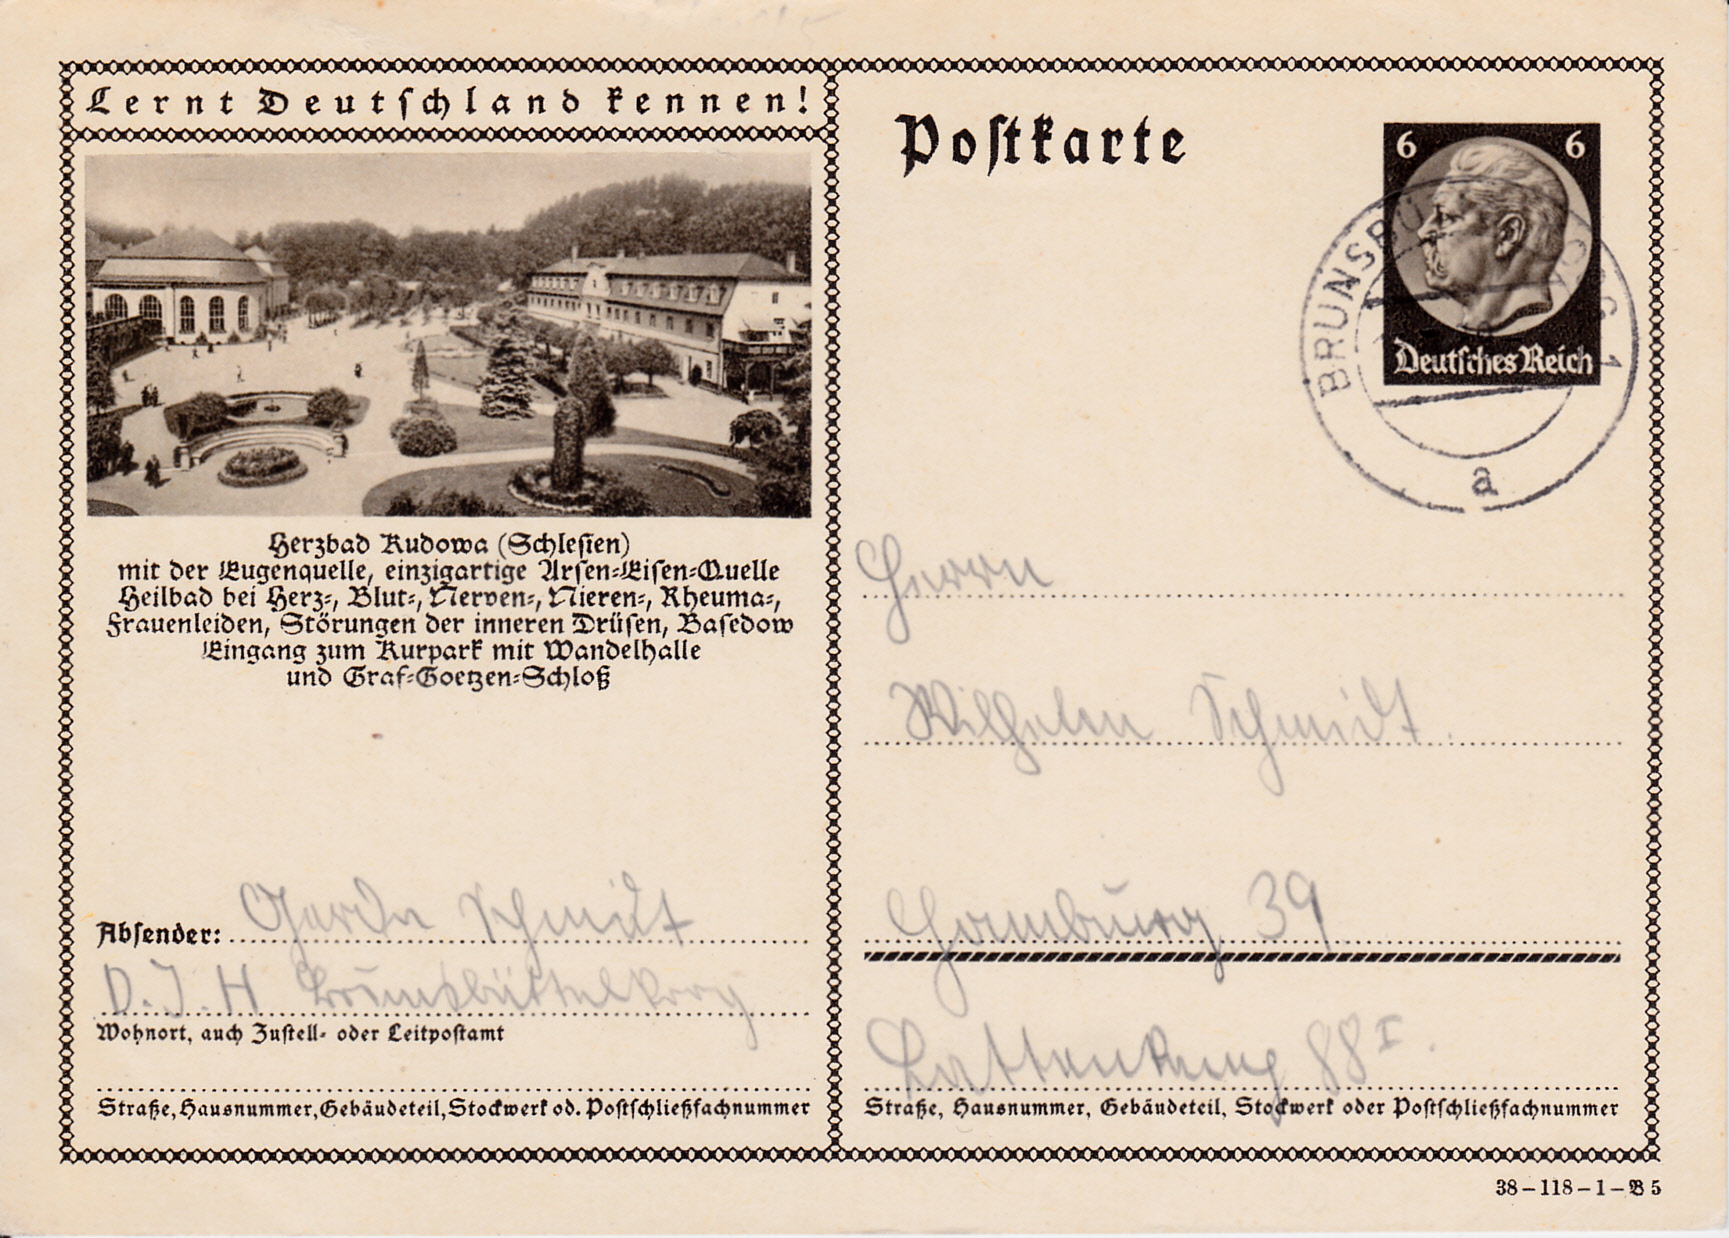 Lernt Deutschland kennen!
Herzbad Kudowa (Schlesien)
mit der Eugenquelle, einzigartige Arsen-Eisen-Quelle
Heilbad bei Herz-, Blut-, Nerven-, Nieren-, Rheuma-,
Frauenleiden, Störungen der inneren Drüsen, Basedow
Eingang zum Kurpark mit Wandelhalle
und Graf-Goetzen-Schloß
Absender: Gerda Schmidt
D.J.H Brunsbüttelkoog
Wohnort, auch Zustell- oder Leitpostamt
Straße, Hausnummer, Gebäudeteil, Stockwerk od. Postschließfachnummer
Postkarte
6 6
Deutsches Reich
a
Herrn
Wilhelm Schmidt.
Hamburg 39
88 I.
Straße, Hausnummer, Gebäudeteil, Stockwerk oder Postschließfachnummer
38-118-1-B 5